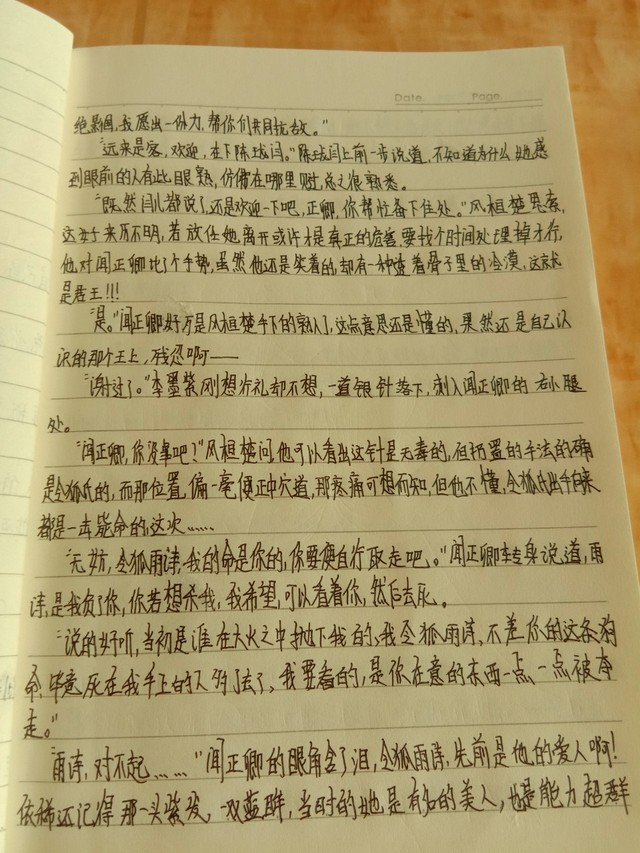 Date. Page.
绝影阁,我愿出一份力,帮你们共同抗敌。"
"远来是客,欢迎,在下陈琰闫。"陈琰闫上前一步说道,不知道为什么,她感
到眼前的人有些眼熟,仿佛在哪里见过,总又很熟悉。
"既然闫儿都说了,还是欢迎一下吧,正卿,你帮忙备下住处。"风桓楚思索,
这女子来历不明,若放任她离开或许才是真正的危险,要找个时间处理掉才行,
他对闻正卿比了个手势,虽然他还是笑着的,却有一种渗着骨子里的冷漠,这就
是君王!!!
"是。"闻正卿好歹是风桓楚手下的熟人,这点意思还是懂的,果然还是自己认
识的那个王上,我忍啊——
"谢过了。"李墨紫刚想行礼却不想,一道银针落下,刺入闻正卿的右小腿
处。
"闻正卿,你没事吧?"风桓楚问,他可以看出这针是无毒的,但扔置的手法的确
是令狐氏的,而那位置,偏一毫便正中穴道,那疼痛可想而知,但他不懂,令狐氏出手自来
都是一击毙命的,这次……
"无妨,令狐雨诗,我的命是你的,你要便自行取走吧。"闻正卿转身说道,雨
诗,是我负了你,你若想杀我,我希望,可以看着你,然后去死。
"说的好听,当初是谁在大火之中抛下我的,我令狐雨诗,不差你的这条狗
命,毕竟死在我手上的人多了去了,我要看的,是你在意的东西一点一点被夺
走。"
"雨诗,对不起……"闻正卿的眼角含了泪,令狐雨诗,先前是他的爱人啊!
依稀还记得那一头紫发,一双蓝眸,当时的她是有名的美人,也是能力超群